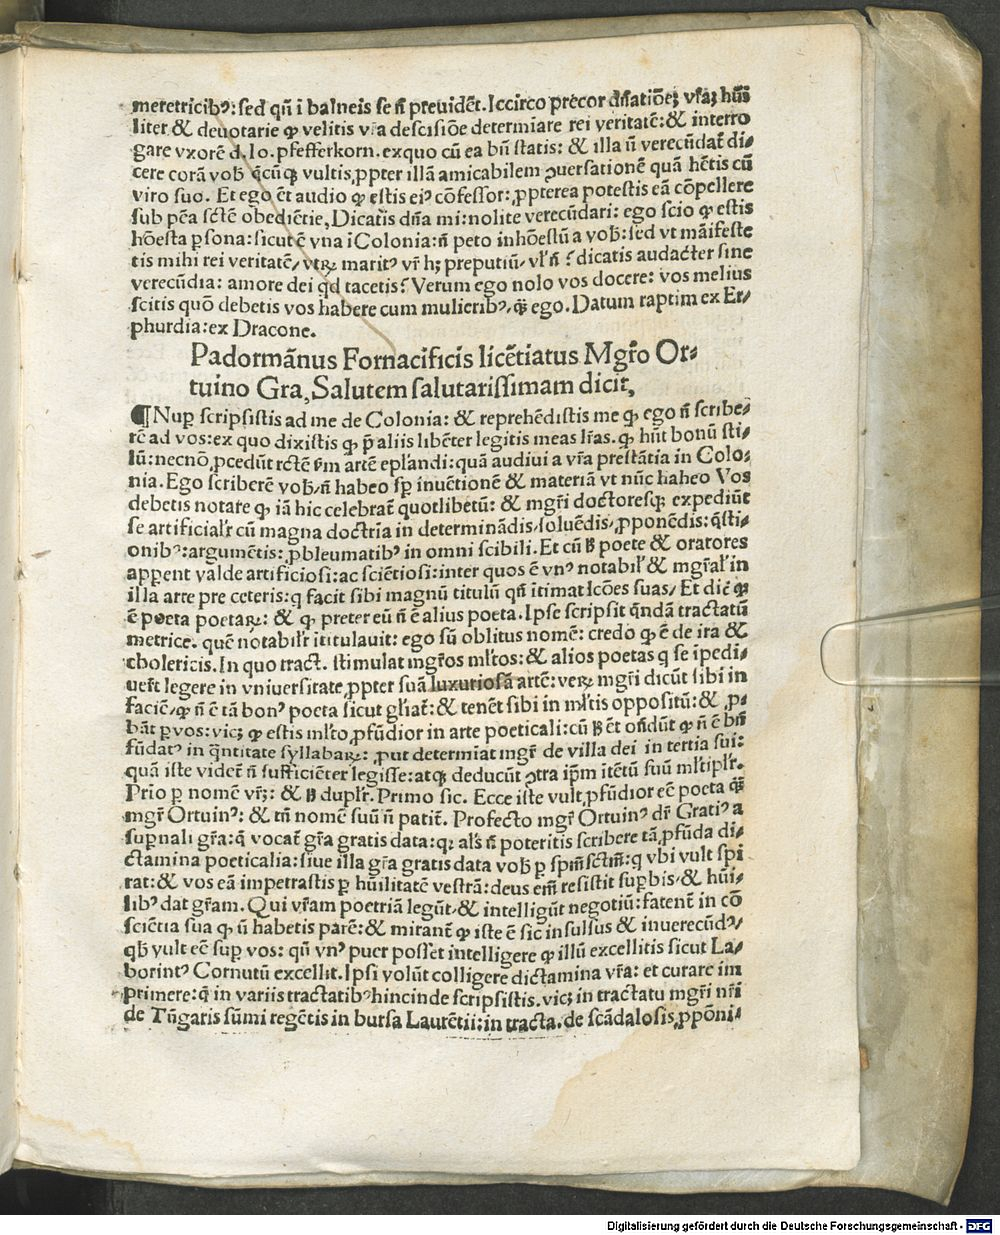 meretricibꝰ: sed qñ i balneis se ñ preuidẽt. Iccirco precor dñatiõeʒ vr̃aʒ hũi
liter & deuotarie ꝙ velitis v̾a descisiõe determiare rei veritatẽ: & interro
gare vxorẽ d. Io. pfefferkorn. exquo cũ ea bñ statis: & illa ñ verecũdat̃ di⸗
cere corã vob̾ q̃cũqʒ vultis, ꝓpter illã amicabilem ꝯuersationẽ quã hẽtis cũ
viro suo. Et ego ẽt audio ꝙ estis eiꝰ cõfessor: ꝓpterea potestis eã cõpellere
sub pẽa sctẽ obediẽtie, Dicatis dña mi: nolite verecũdari: ego scio ꝙ estis
hõesta p̱sona: sicut ẽ vna i Colonia: ñ peto inhõestũ a vob̾: sed vt mãifeste
tis mihi rei veritatẽ/ vtꝝ maritꝰ vr̃ hʒ preputiũ/ vl̾ ñ? dicatis audacter sine
verecũdia: amore dei qd̾ tacetis? Verum ego nolo vos docere: vos melius
scitis quõ debetis vos habere cum mulieribꝰ, q̃ʒ ego. Datum raptim ex Er⸗
phurdia: ex Dracone.
Padormãnus Fornacificis licẽtiatus Mgr̃o Or⸗
tuino Gra, Salutem salutarissimam dicit,
¶ Nup̱ scripsistis ad me de Colonia: & reprehẽdistis me ꝙ ego ñ scribe⸗
rẽ ad vos: ex quo dixistis ꝙ p̃ aliis libẽter legitis meas lr̃as. ꝙ hñt bonũ sti⸗
lũ: necnõ ꝓcedũt rctẽ ẜm artẽ epl̾andi: quã audiui a vr̃a prestãtia in Colo⸗
nia. Ego scriberẽ vob̾/ ñ habeo sp̱ inuẽtionẽ & materiã vt nũc habeo Vos
debetis notare ꝙ iã hic celebrat̃ quotlibetũ: & mgr̃i doctoresqʒ expediũt
se artificialr̾ cũ magna doctria in determinãdis/ soluẽdis, ꝓponẽdis: q̃sti⸗
onibꝰ: argumẽtis: ꝓbleumatibꝰ in omni scibili. Et cũ ꝧ poete & oratores
app̱ent valde artificiosi: ac sciẽtiosi: inter quos ẽ vnꝰ notabil̾ & mgr̃al̾ in
illa arte pre ceteris: q facit sibi magnũ titulũ qñ ĩtimat lcões suas/ Et dic̾ ꝙ
ẽ poeta poetaꝝ: & ꝙ preter eũ ñ ẽ alius poeta. Ipse scripsit q̃ndã tractatũ
metrice. quẽ notabilr̾ ĩtitulauit: ego sũ oblitus nomẽ: credo ꝙ ẽ de ira &
cholericis. In quo tract. stimulat mgr̃os ml̾tos: & alios poetas q se ĩpedi⸗
uer̃t legere in vniuersitate, ꝓpter suã luxuriosã artẽ: veꝝ mgr̃i dicũt sibi in
faciẽ/ ꝙ ñ ẽ tã bonꝰ poeta sicut gl̾iat̃: & tenẽt sibi in ml̾tis oppositũ: & ꝓ⸗
bãt p̱ vos: vicʒ ꝙ estis ml̾to ꝓfũdior in arte poeticali: cũ ꝧ ẽt oñdũt ꝙ ñ ẽ bñ
fũdatꝰ in q̃ntitate syllabaꝝ: ꝓut determiat mgr̃ de villa dei in tertia sui:
quã iste videt̃ ñ sufficiẽter legisse: atqʒ deducũt ꝯtra ip̃m ĩtẽtũ suũ ml̾tiplr̾.
Prio p̱ nomẽ vr̃ʒ: & ꝧ duplr̾. Primo sic. Ecce iste vult ꝓfũdior eẽ poeta q̃ʒ
mgr̃ Ortuinꝰ: & tñ nomẽ suũ ñ patit̃. Profecto mgr̃ Ortuinꝰ dr̃ Gratiꝰ a
sup̱nali gr̃a: q̃ vocat̃ gr̃a gratis data: qꝛ als̾ ñ poteritis scribere tã ꝓfũda di⸗
ctamina poeticalia: siue illa gr̃a gratis data vob̾ p̱ spm̃ sctm̃: q vbi vult spi
rat: & vos eã impetrastis p̱ hũilitatẽ vestrã: deus em̃ resistit sup̱bis/ & hũi⸗
libꝰ dat gr̃am. Qui vr̃am poetriã legũt/ & intelligũt negotiũ: fatent̃ in cõ
sciẽtia sua ꝙ ñ habetis parẽ: & mirant̃ ꝙ iste ẽ sic insulsus & inuerecũdꝰ/
qb̾ vult eẽ sup̱ vos: qñ vnꝰ puer posset intelligere ꝙ illũ excellitis sicut La⸗
borintꝰ Cornutũ excellit. Ipsi volũt colligere dictamina vr̃a: et curare im
primere: q̃ in variis tractatibꝰ hincinde scripsistis. vicʒ in tractatu mgr̃i nr̃i
de Tũgaris sũmi regẽtis in bursa Laurẽtii: in tracta. de scãdalosis, ꝓpõni⸗
Digitalisierung gefördert durch die Deutsche Forschungsgemeinschaft - DFG